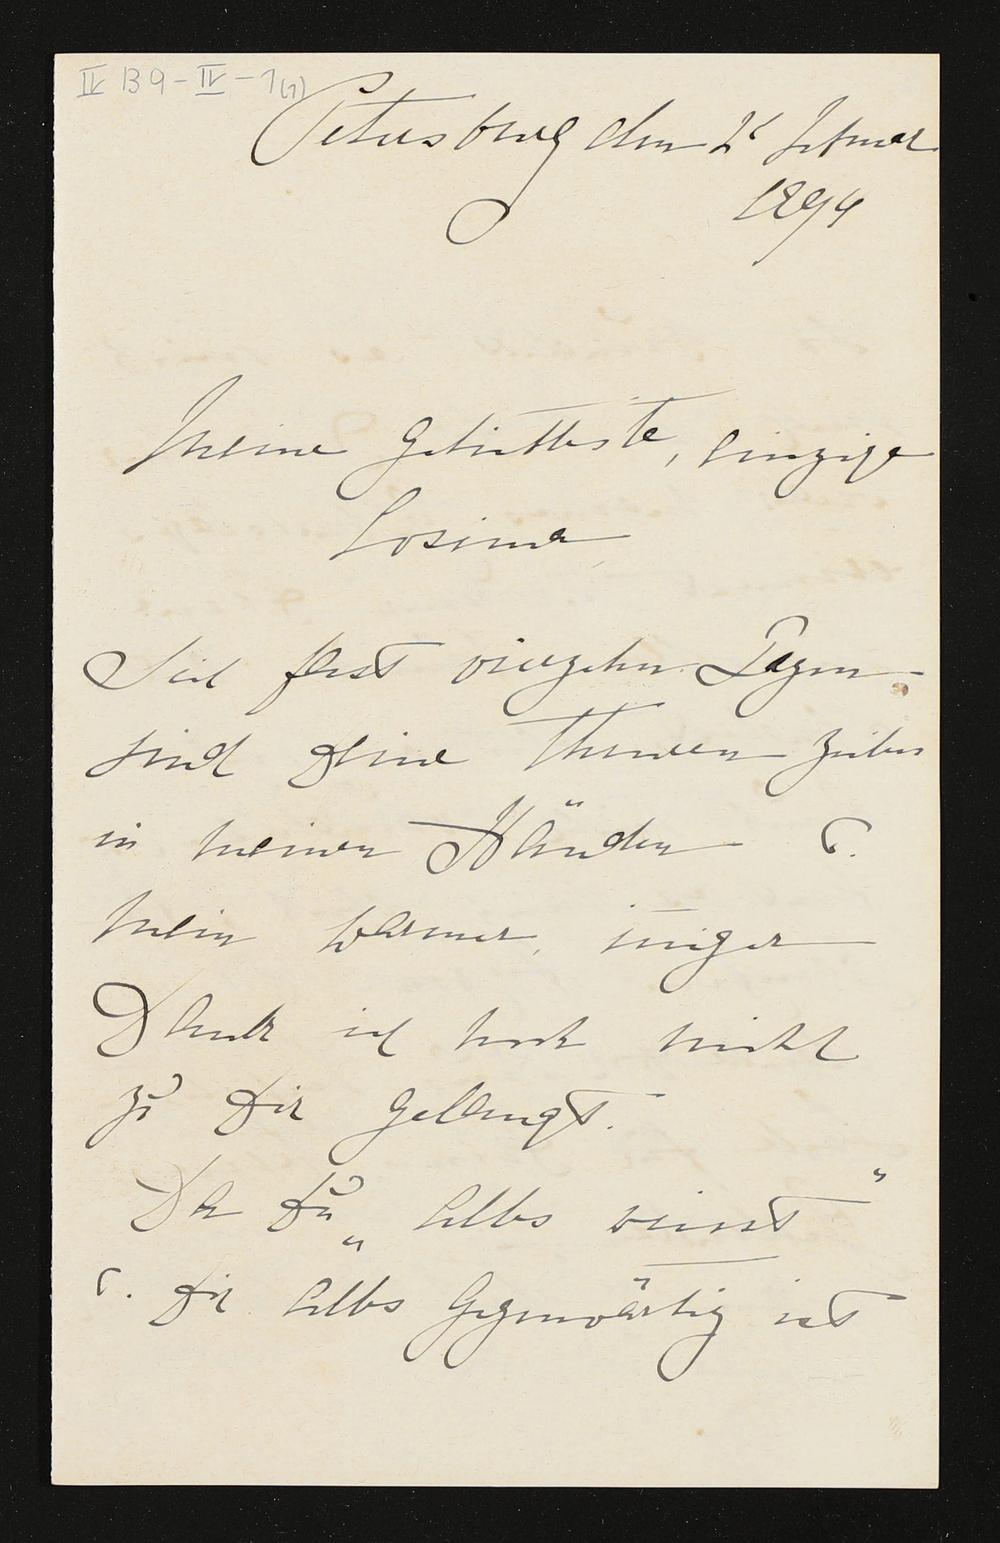 IV B 9 - IV - 1 (1)
Petersburg den 2t Februar
1894
Meine Geliebteste, einzige
Cosima
Seit fast vierzehn Tagen
sind Deine theuren Zeilen
in meinen Händen u.
mein warmer, inniger
Dank ist noch nicht
zu Dir gelangt.
Da Du „Alles weisst"
u. Dir Alles gegenwärtig ist